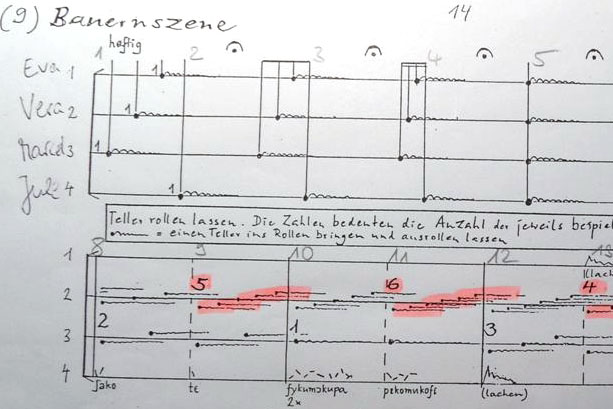 (9) Bauernszene
14
heftig
1 2 3 4 5
Eva 1 1
Vera 2 1
3 1
4 1
Teller rollen lassen. Die Zahlen bedeuten die Anzahl der jeweils bespiel
= einen Teller ins Rollen bringen und ausrollen lassen
8 9 10 11 12 13
1 (lach
2 5 6 4
3 2 1 3
4
sako te fykumskupa pekomukofs (lachen)
2x